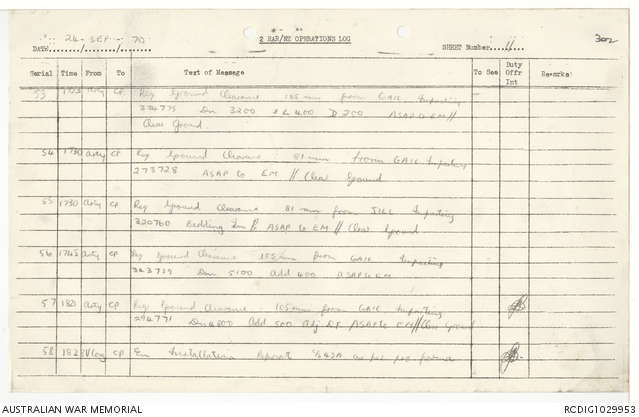 24 - SEP - 70
2 RAR/NZ OPERATIONS LOG
302
DATE
SHEET Number 11
Serial Time From To Text of Message To See Duty Offr Int Remarks
53 1725 Arty CP Req Ground Clearance 155 mm from GAIL Impacting
Dn 3200 L 400 D 200 ASAP to EM //
Clear Ground
54 1730 Arty CP Req Ground Clearance 81 mm from GAIL Impacting
273728 ASAP to EM // Clear Ground
55 1730 Arty CP Req Ground Clearance 81 mm from JILL Impacting
320760 Bedding In ASAP to EM // Clear Ground
56 1745 Arty CP Req Ground Clearance 155 mm from GAIL Impacting
343739 Dn 5100 Add 400 ASAP to EM
57 Arty CP Req Ground Clearance 105 mm from GAIL Impacting
294771 Dn 4800 Add 500 Adj DF ASAP to EM // Clear Ground
58 CP En Installation Report as per pro forma
AUSTRALIAN WAR MEMORIAL
RCDIG1029953